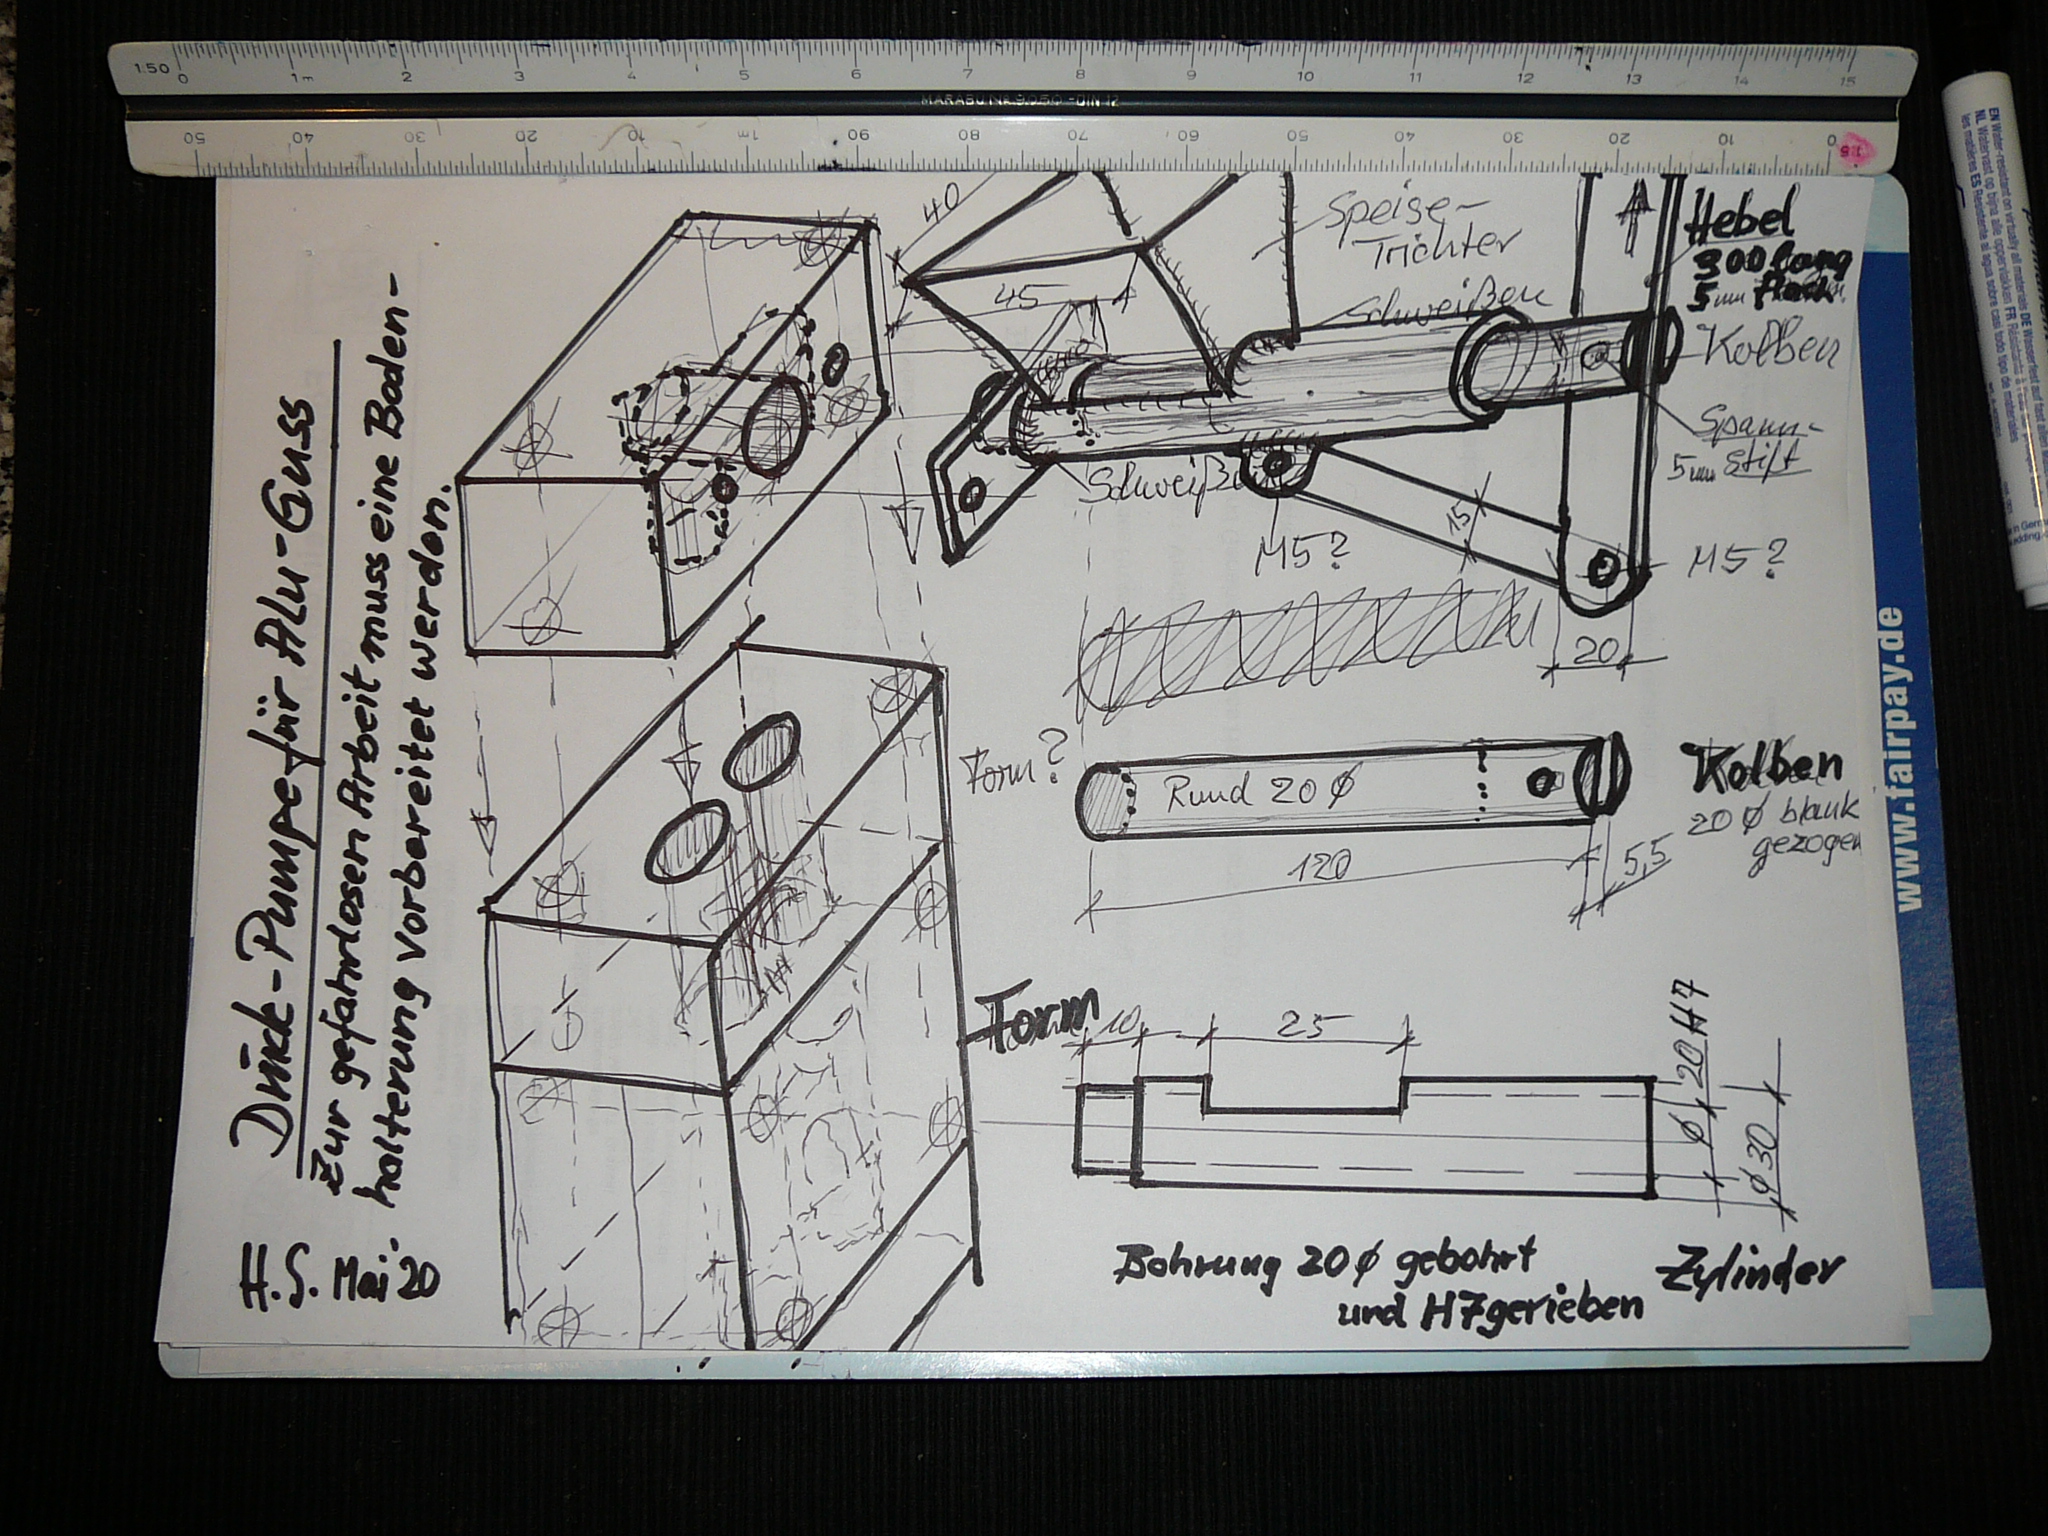 1:50 0 1m 2 3 4 5 6 7 8 9 10 11 12 13 14 15
MARABU Nr. 9050 -DIN 12
50 40 30 20 10 1m 90 80 70 60 50 40 30 20 10 0 1:5
Druck-Pumpe für Alu-Guss
Zur gefahrlosen Arbeit muss eine Boden-
halterung vorbereitet werden.
H.S. Mai. 20
40
45
Speise-
Trichter
Schweißen
Hebel
300 lang
5mm flach
Kolben
Spann-
Stift
5mm
Schweißen
M5?
15
M5?
20
Form?
Rund 20 Ø
Kolben
20 Ø blank
gezogen
120
5,5
Form
10
25
Ø 20 H7
Ø 30
Bohrung 20 Ø gebohrt
und H7 gerieben
Zylinder
www.fairpay.de